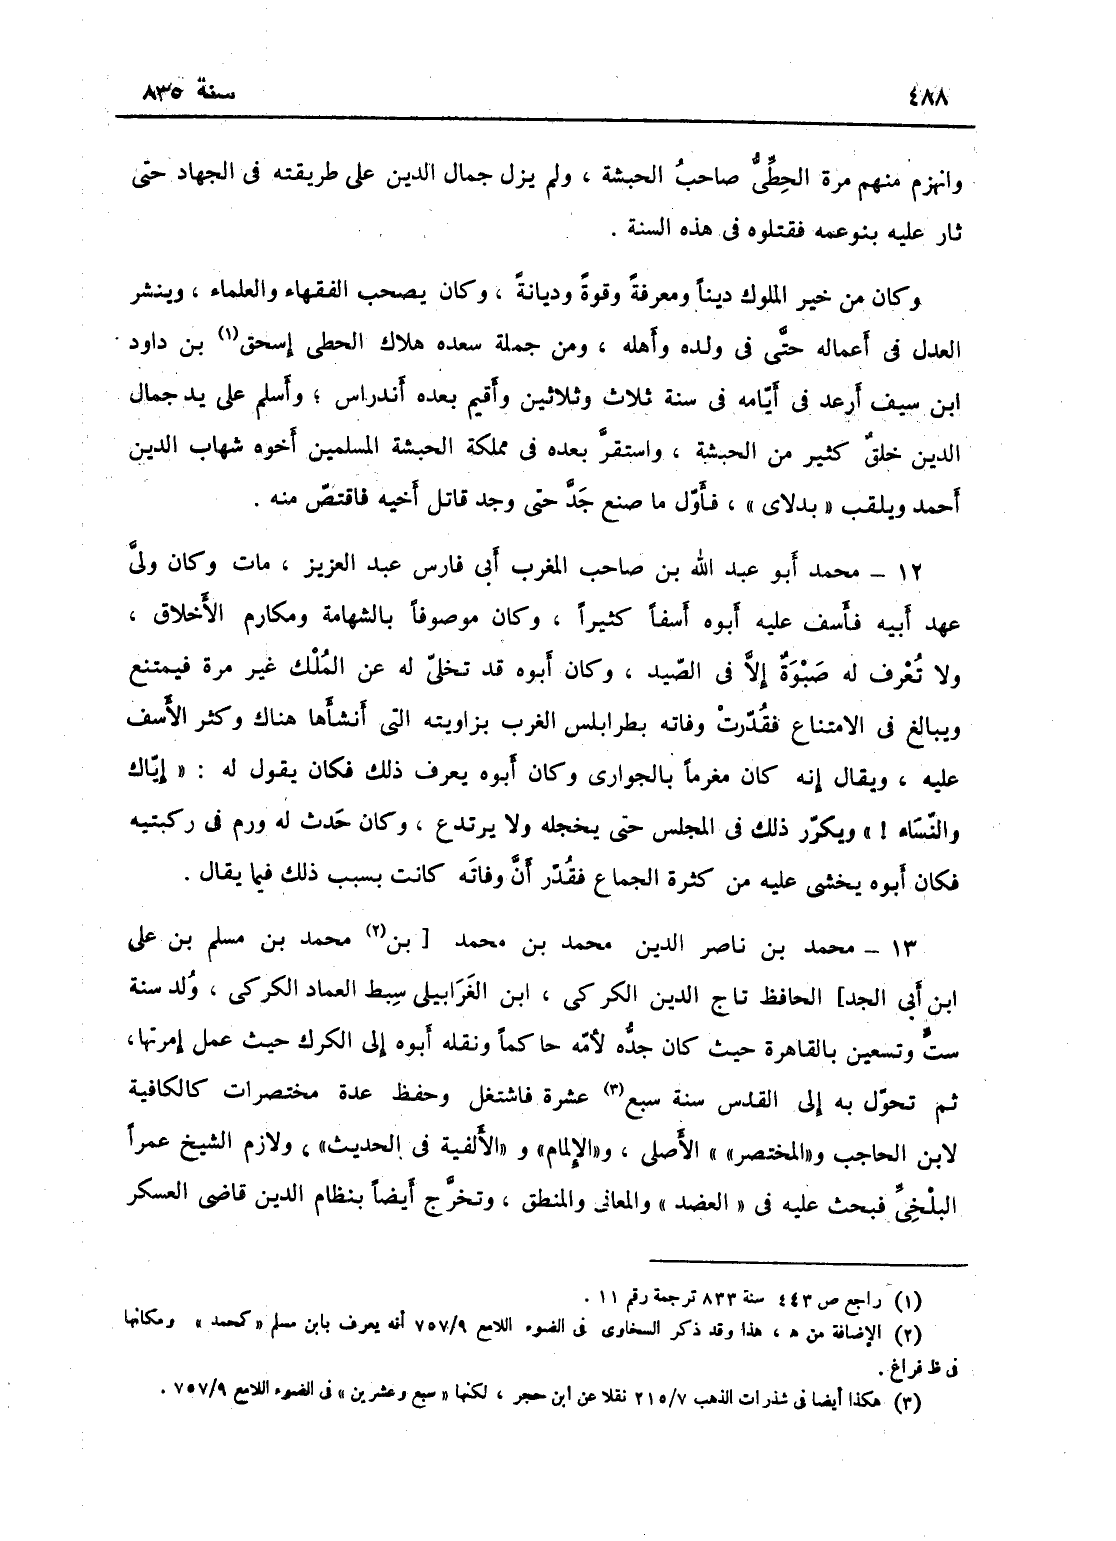 ٤٨٨
سنة ٨٣٥
وانهزم منهم مرة الحِطِّىُّ صاحبُ الحبشة ، ولم يزل جمال الدين على طريقته فى الجهاد حتى
ثار عليه بنوعمه فقتلوه فى هذه السنة .
وكان من خير الملوك ديناً ومعرفةً وقوةً وديانةً ، وكان يصحب الفقهاء والعلماء ، وينشر
العدل فى أَعماله حتَّى فى ولده وأَهله ، ومن جملة سعده هلاك الحطى إسحق(١) بن داود
ابن سيف أَرعد فى أَيّامه فى سنة ثلاث وثلاثين وأَقيم بعده أَندراس ؛ وأَسلم على يد جمال
الدين خلقٌ كثير من الحبشة ، واستقرَّ بعده فى مملكة الحبشة المسلمين أَخوه شهاب الدين
أَحمد ويلقب « بدلاى » ، فأَوّل ما صنع جَدَّ حتى وجد قاتل أَخيه فاقتصّ منه .
١٢ ــ محمد أَبو عبد الله بن صاحب المغرب أَبى فارس عبد العزيز ، مات وكان ولىَّ
عهد أَبيه فأَسف عليه أَبوه أَسفاً كثيراً ، وكان موصوفاً بالشهامة ومكارم الأَخلاق ،
ولا تُعْرف له صَبْوَةٌ إِلاَّ فى الصّيد ، وكان أَبوه قد تخلىّ له عن المُلْك غير مرة فيمتنع
ويبالغ فى الامتناع فقُدّرتْ وفاته بطرابلس الغرب بزاويته التى أَنشأَها هناك وكثر الأَسف
عليه ، ويقال إنه كان مغرماً بالجوارى وكان أَبوه يعرف ذلك فكان يقول له : « إيّاك
والنّسَاء ! » ويكرّر ذلك فى المجلس حتى يخجله ولا يرتدع ، وكان حَدث له ورم فى ركبتيه
فكان أَبوه يخشى عليه من كثرة الجماع فقُدّر أَنَّ وفاتَه كانت بسبب ذلك فيما يقال .
١٣ ــ محمد بن ناصر الدين محمد بن محمد [ بن(٢) محمد بن مسلم بن على
ابن أَبى الجد] الحافظ تاج الدين الكركى ، ابن الغَرَابيلى سِبط العماد الكركى ، وُلد سنة
ستٍّ وتسعين بالقاهرة حيث كان جدُّه لأمّه حاكماً ونقله أَبوه إلى الكرك حيث عمل إمرتها،
ثم تحوّل به إلى القدس سنة سبع(٣) عشرة فاشتغل وحفظ عدة مختصرات كالكافية
لابن الحاجب و«المختصر» » الأَصلى ، و«الإلمام» و «الأَلفية فى الحديث» ، ولازم الشيخ عمراً
البلْخِىِّ فبحث عليه فى « العضد » والمعانى والمنطق ، وتخرَّج أَيضاً بنظام الدين قاضى العسكر
(١) راجع ص ٤٤٣ سنة ٨٣٣ ترجمة رقم ١١ .
(٢) الإضافة من ه ، هذا وقد ذكر السخاوى فى الضوء اللامع ٧٥٧/٩ أنه يعرف بابن مسلم « كمحمد » ومكانها
فى ظ فراغ .
(٣) هكذا أيضا فى شذرات الذهب ٢١٥/٧ نقلا عن ابن حجر ، لكنها « سبع وعشرين » فى الضوء اللامع ٧٥٧/٩ .